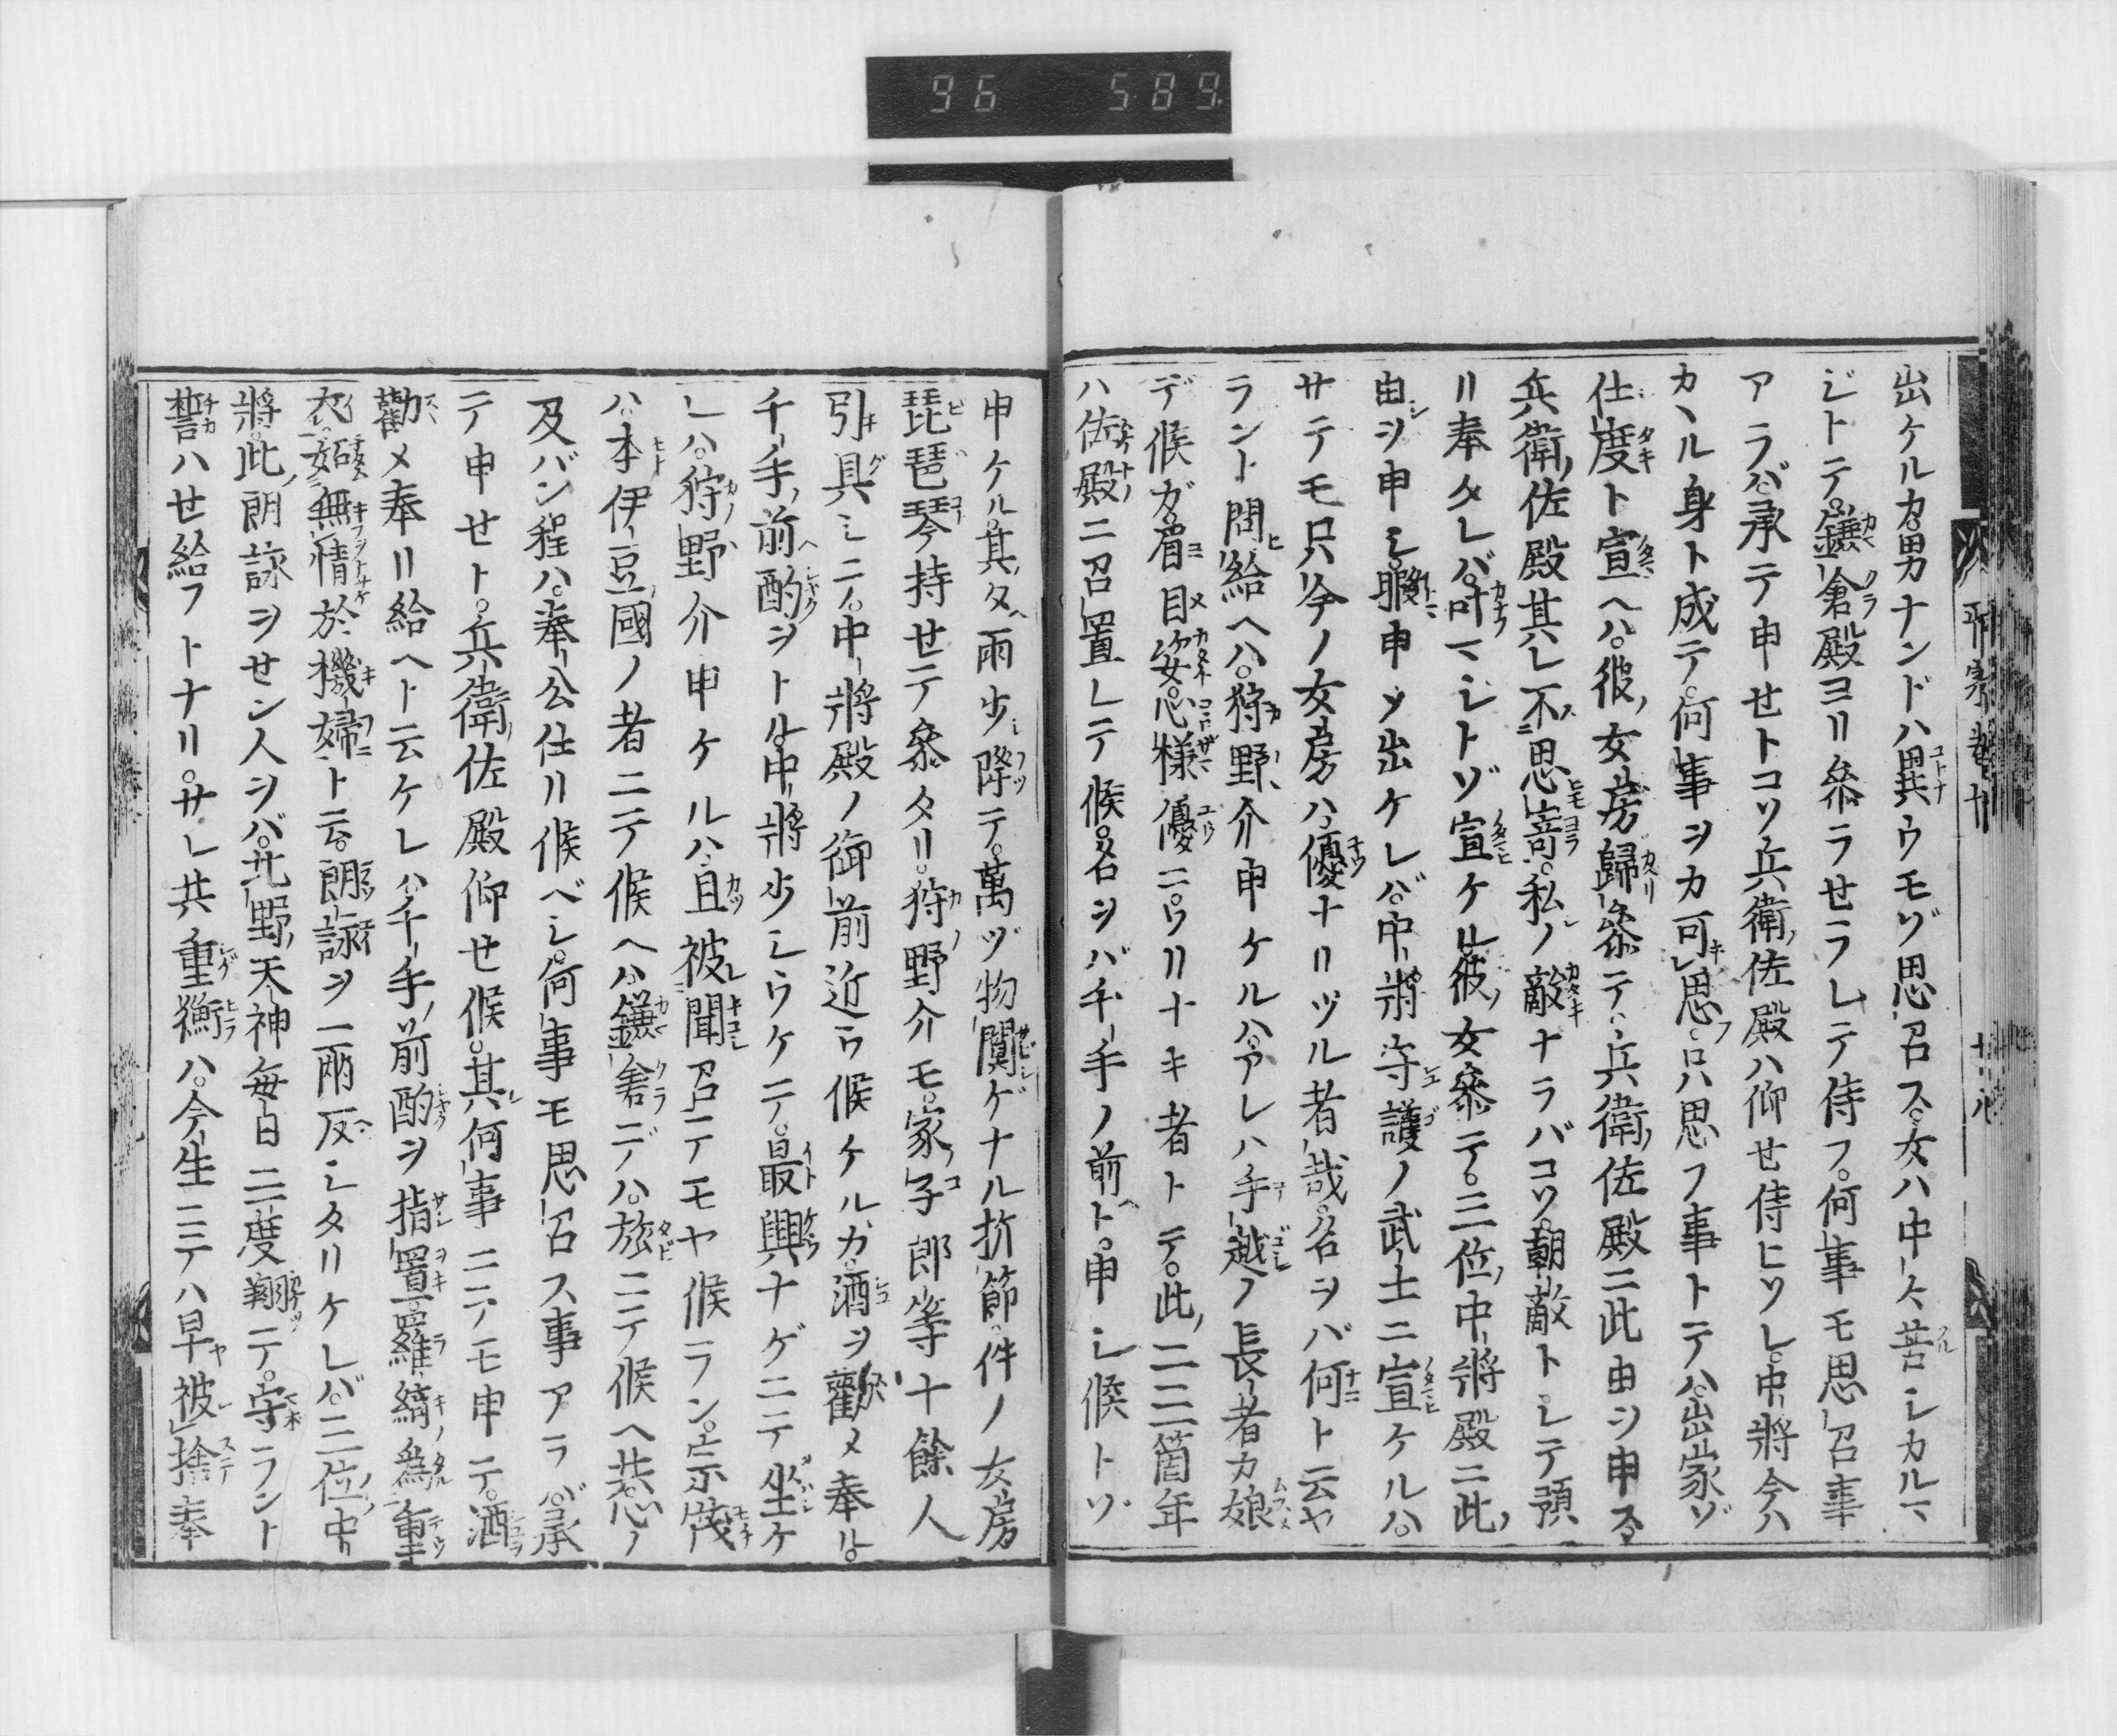 96 589
出ケルカ男ナンドハ異ウモゾ思召ス女ハ中々苦シカルマ
ジトテ鎌倉殿ヨリ參ラセラレテ侍フ何事モ思召事
アラバ承テ申セトコソ兵衛佐殿ハ仰セ侍ヒツレ中將今ハ
カヽル身ト成テ何事ヲカ可思只思フ事トテハ出家ゾ
仕度ト宣ヘハ彼女房歸參テ兵衛佐殿ニ此由ヲ申ス
兵衛佐殿其レ不思寄私ノ敵ナラバコソ朝敵トレテ預
リ奉タレバ叶マシトゾ宣ケル彼女參テ三位中將殿ニ此
由ヲ申シ暇申ツ出ケレバ中將守護ノ武士ニ宣ケルハ
サテモ只今ノ女房ハ優ナリツル者哉名ヲバ何ト云ヤ
ラント問給ヘハ狩野介申ケルハアレハ手越ノ長者カ娘
デ候ガ眉目姿心樣優ニウリナキ者トテ此二三箇年
ハ佐殿ニ召置レテ候名ヲバ千手ノ前ト申シ候トゾ
平家卷十
申ケル其夕雨少降テ萬ヅ物閴ゲナル折節件ノ女房
琵琶琴持セテ參タリ狩野介モ家子郎等十餘人
引具シニノ中將殿ノ御前近ウ候ケルカ酒ヲ勸メ奉ル
千手前酌ヲトル中將少シウケテ最興ナゲニテ坐ケ
レハ狩野介申ケルハ且被聞召テモヤ候ラン宗茂
ハ本伊豆國ノ者ニテ候ヘハ鎌倉デハ旅ニテ候ヘ共心ノ
及バン程ハ奉公仕リ候ベシ何事モ思召ス事アラバ承
テ申セト兵衛佐殿仰セ候其何事ニテモ申テ酒
勸メ奉リ給ヘト云ケレハ千手前酌ヲ指置羅綺爲重
衣妬無情於機婦ト云朗詠ヲ一兩反シタリケレバ三位中
將此朗詠ヲセン人ヲバ北野天神毎日三度翔テ守ラント
誓ハセ給フトナリサレ共重衡ハ今生ニテハ早被捨奉